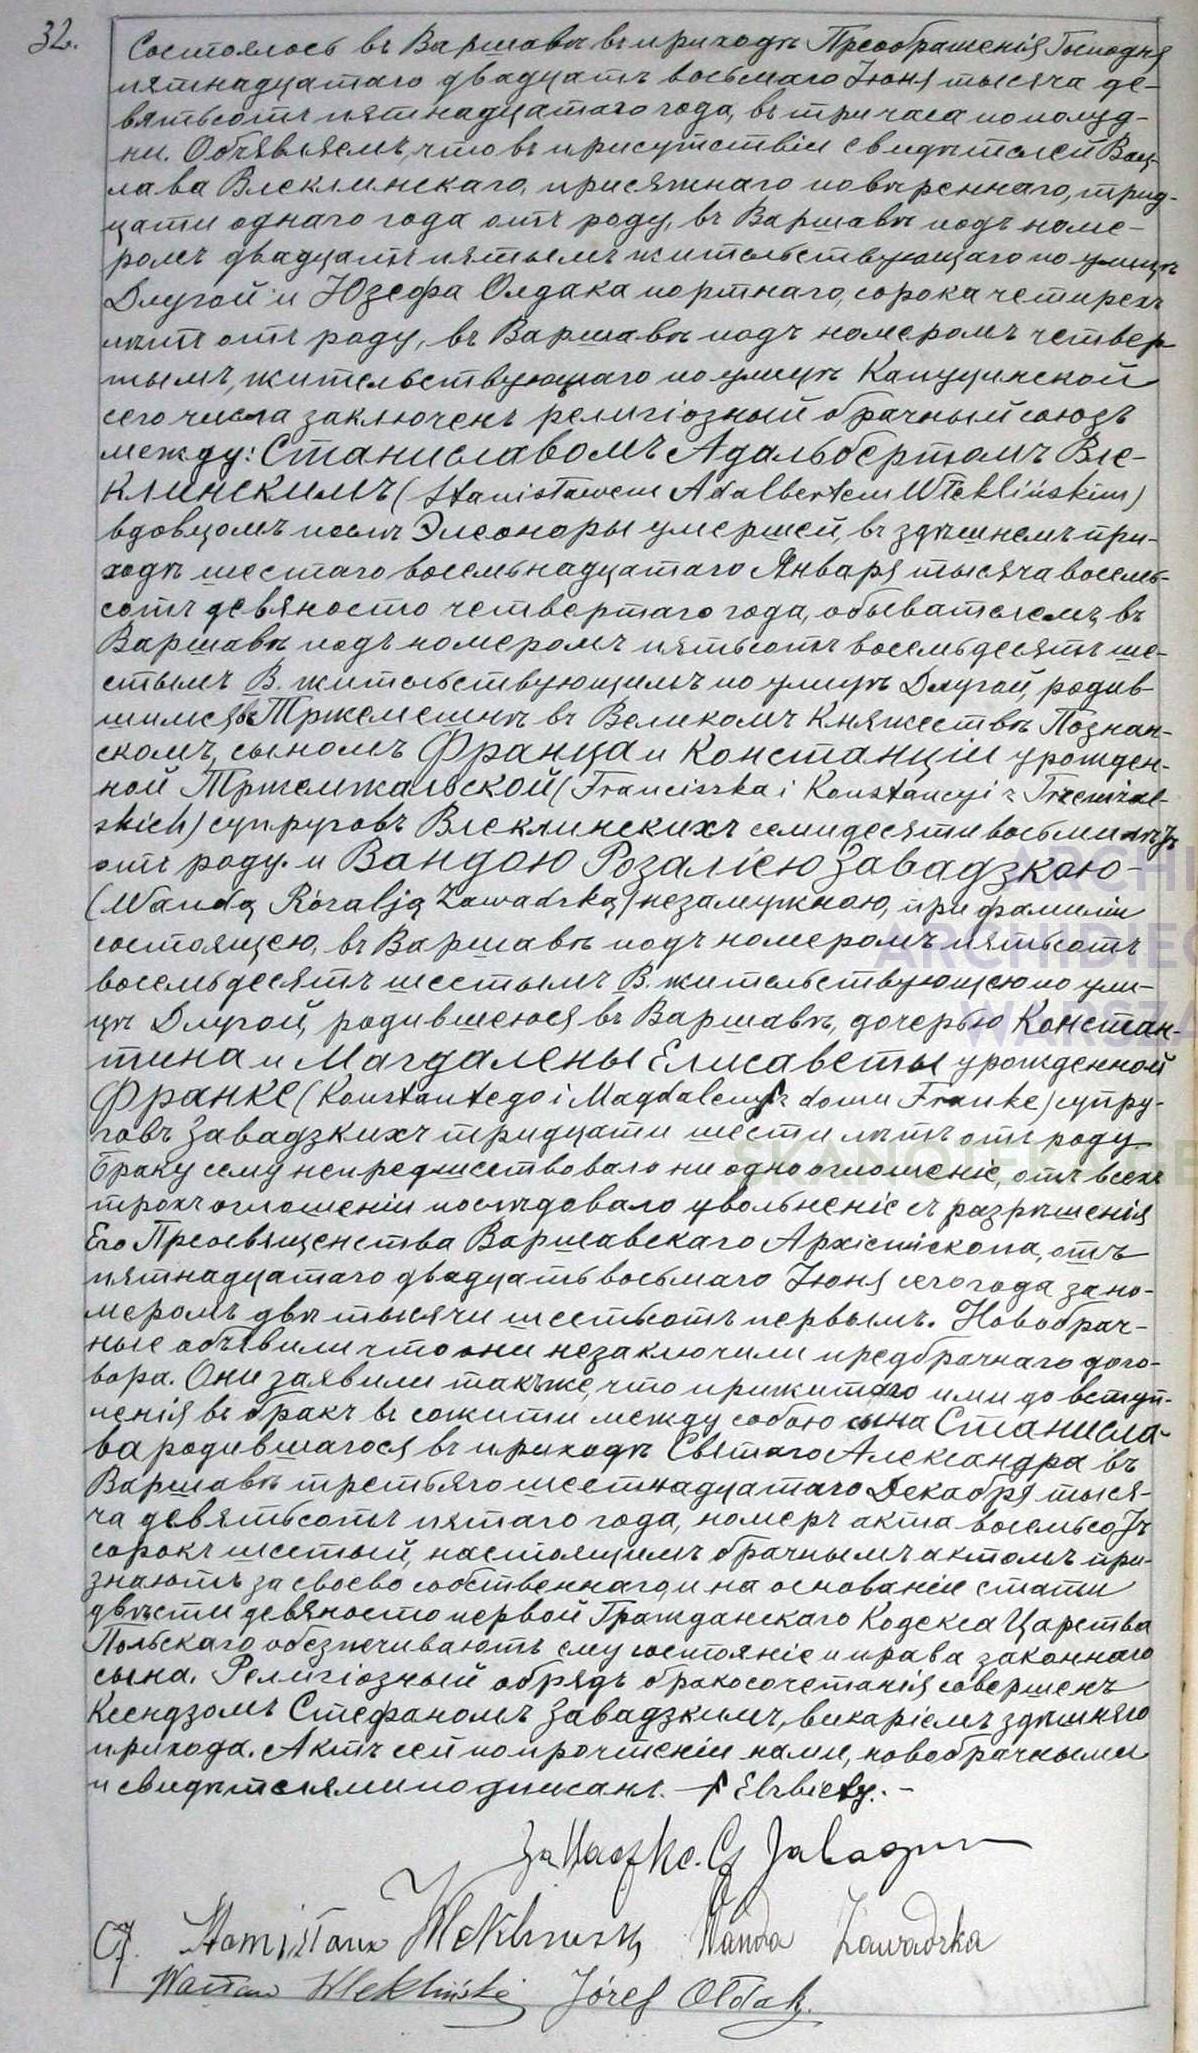 32.
Состоялось въ Варшавѣ въ приходѣ Преображенія Господня
пятнадцатаго двадцать восьмаго Іюня тысяча де-
вятьсотъ пятнадцатаго года, въ три часа пополуд-
ни. Объявляемъ, что въ присутствіи свидѣтелей Вац-
лава Влеклинскаго, присяжнаго повѣреннаго, трид-
цати однаго года отъ роду, въ Варшавѣ подъ номе-
ромъ двадцать пятымъ жительствующаго по улицѣ
Длугой и Юзефа Олдака портнаго, сорока четырехъ
лѣтъ отъ роду, въ Варшавѣ подъ номеромъ четвер-
тымъ, жительствующаго по улицѣ Капуцинской
сего числа заключенъ религіозный брачный союзъ
между: Станиславомъ Адальбертомъ Вле-
клинскимъ (Stanisławem Adalbertem Wleklińskim)
вдовцомъ послѣ Элеоноры умершей, въ здѣшнемъ при-
ходѣ шестаго восемьнадцатаго Января тысяча восемь-
сотъ девяносто четвертаго года, обывателемъ, въ
Варшавѣ подъ номеромъ пятьсотъ восемьдесятъ ше-
стымъ В. жительствующимъ по улицѣ Длугой, родив-
шимся въ Тржемешнѣ въ Великомъ Княжествѣ Познан-
скомъ, сыномъ Франца и Констанціи урожден-
ной Тржемжальской (Franciszka i Konstancyi z Trzemżal-
skich) супруговъ Влеклинскихъ семидесяти восьми лѣтъ
отъ роду. и Вандою Розаліею Завадзкою-
(Wandą Rózalją Zawadzką) незамужною, при фамиліи
состоящею, въ Варшавѣ подъ номеромъ пятьсотъ
восемьдесятъ шестымъ В. жительствующею по ули-
цѣ Длугой, родившеюся въ Варшавѣ, дочерью Констан-
тина и Магдалены Елисаветы урожденной
Франке (Konstantego i Magdaleny ſ z domu Franke) супру-
говъ Завадзкихъ тридцати шести лѣтъ отъ роду.
Браку сему непредшествовало ни одно оглошеніе, отъ всехъ
трохъ оглошеніи послѣдовало увольненіе съ разрѣшенія
Его Преосвященства Варшавскаго Архіепископа, отъ
пятнадцатаго двадцать восьмаго Іюня сего года за но-
меромъ двѣ тысячи шестьсотъ первымъ. Новобрач-
ные объявили что они незаключили предбрачнаго дого-
вора. Они заявили такъже, что прижитаго ими до вступ-
ленія въ бракъ въ сожити между собою сына Станисла-
ва родившагося въ приходѣ Святаго Александра въ
Варшавѣ третьяго шестнадцатаго Декабря тыся-
ча девятьсотъ пятаго года, номеръ акта восемьсотъ
сорокъ шестый, настоящимъ брачнымъ актомъ при-
знаютъ за своево собственнаго, и на основаніи статьи
двѣсти девяносто первой Гражданскаго Кодекса Царства
Польскаго обезпечиваютъ ему состояніе и права законнаго
сына. Религіозный обрядъ бракосочетанія совершенъ
Ксендзомъ Стефаномъ Завадзкимъ, викаріемъ здѣшняго
прихода. Актъ сей по прочтеніи нами, новобрачными
и свидѣтелями подписанъ. - ſ Elżbiety. -
Stanisław Wlekliński Wanda Zawadzka
Wacław Wlekliński Józef Ołdak.
ARCHI
ARCHIDIEC
WARSZA
SKANOTEKA